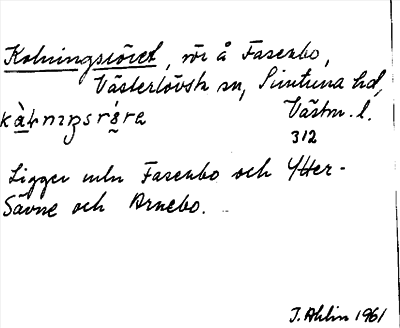 Kolningsröret, rör å Fasenbo,
Västerlövsta sn, Simtuna hd,
Västm. l.
312
Ligger mln Fasenbo och Ytter-
Sävne och Arnebo.
J. Ahlin 1961